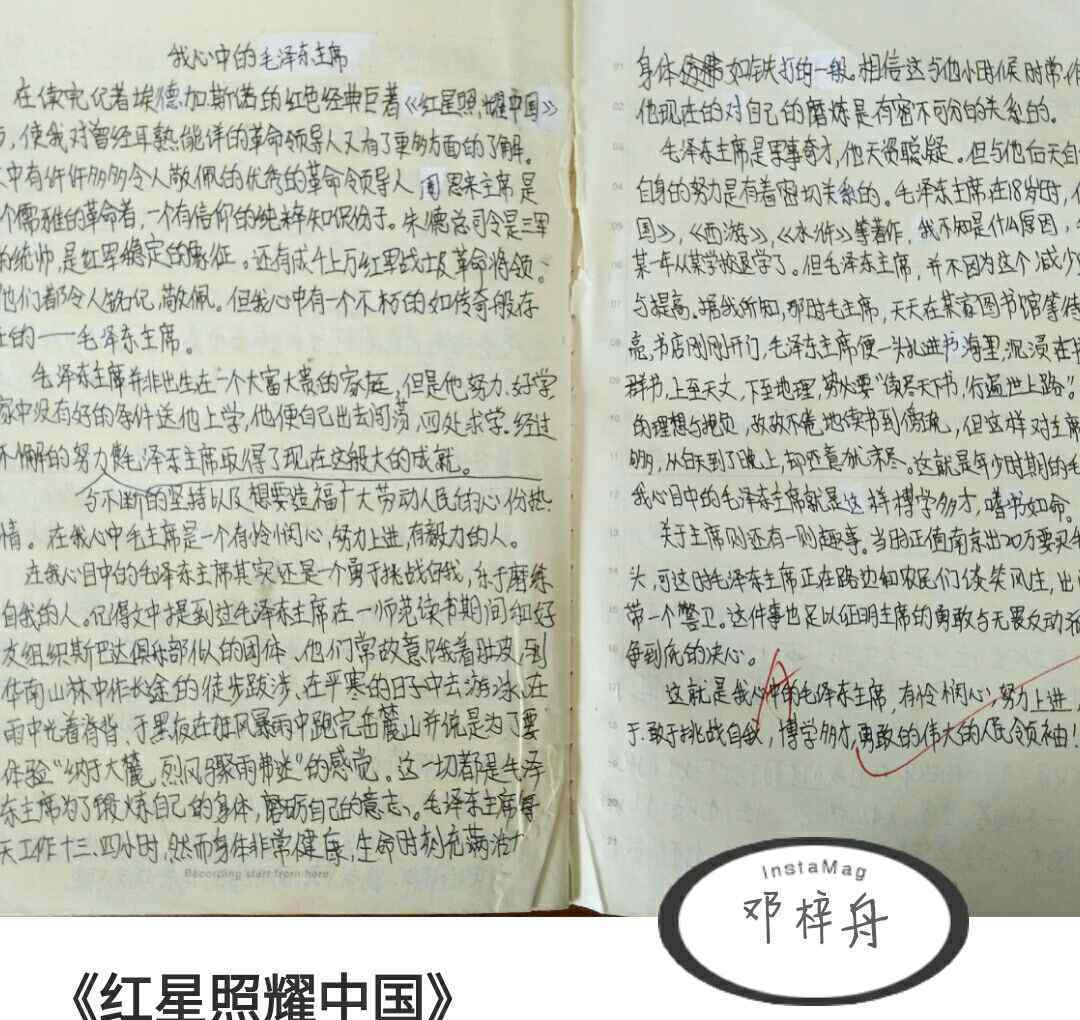 我心中的毛泽东主席
在读完记者埃德加·斯诺的红色经典巨著《红星照耀中国》
后，使我对曾经耳熟能详的革命领导人又有了更多方面的了解。
中有许许多多令人敬佩的优秀的革命领导人，周恩来主席是
个儒雅的革命者，一个有信仰的纯粹知识份子。朱德总司令是三军
的统帅，是红军稳定的象征。还有成千上万红军战士及革命将领，
他们都令人铭记，敬佩。但我心中有一个不朽的如传奇般存
在的——毛泽东主席。
毛泽东主席并非出生在一个大富大贵的家庭，但是他努力、好学，
家中没有好的条件送他上学，他便自己出去闯荡，四处求学。经过
不懈的努力使毛泽东主席取得了现在这般大的成就。
与不断的坚持以及想要造福广大劳动人民的心份热
情。在我心中毛主席是一个有怜悯心，努力上进，有毅力的人。
在我心目中的毛泽东主席其实还是一个勇于挑战自我，乐于磨练
自我的人。记得文中提到过毛泽东主席在一师范读书期间和好
友组织斯巴达俱乐部似的团体、他们常故意饿着肚皮，到
华南山林中作长途的徒步跋涉，在平寒的日子中去游泳，在
雨中光着脊背、于黑夜在狂风暴雨中跑完岳麓山并说是为了要
体验“纳于大麓，烈风骤雨弗迷”的感觉。这一切都是毛泽
东主席为了锻炼自己的身体，磨砺自己的意志。毛泽东主席每
天工作十三、四小时，然而身体非常健康，生命时刻充满活力
Recording start from here
身体仿佛如铁打的一般。相信这与他小时候时常作
他现在的对自己的磨炼是有密不可分的关系的。
毛泽东主席是军事奇才，他天资聪疑。但与他后天自
自身的努力是有着密切关系的。毛泽东主席在18岁时，
国》，《西游》，《水浒》等著作，我不知是什么原因，
某一年从某学校退学了。但毛泽东主席，并不因为这个减少
与提高。据我所知，那时毛主席，天天在某省图书馆等待
亮，书店刚刚开门，毛泽东主席便一头扎进书海里，沉浸在
群书，上至天文，下至地理，势必要“读尽天下书，行遍世上路。”
的理想与抱负，孜孜不倦地读书到傍晚，但这样对主席
够，从白天到了晚上，却还意犹未尽。这就是年少时期的毛
我心目中的毛泽东主席就是这样博学多才，嗜书如命。
关于主席则还有一则趣事。当时正值南京出20万要买毛
头，可这时毛泽东主席正在路边和农民们谈笑风生，出
带一个警卫。这件事也足以证明主席的勇敢与无畏反动派
争到底的决心。
这就是我心中的毛泽东主席，有怜悯心，努力上进，
于敢于挑战自我，博学多才，勇敢的伟大的人民领袖！
InstaMag
邓梓舟
《红星照耀中国》